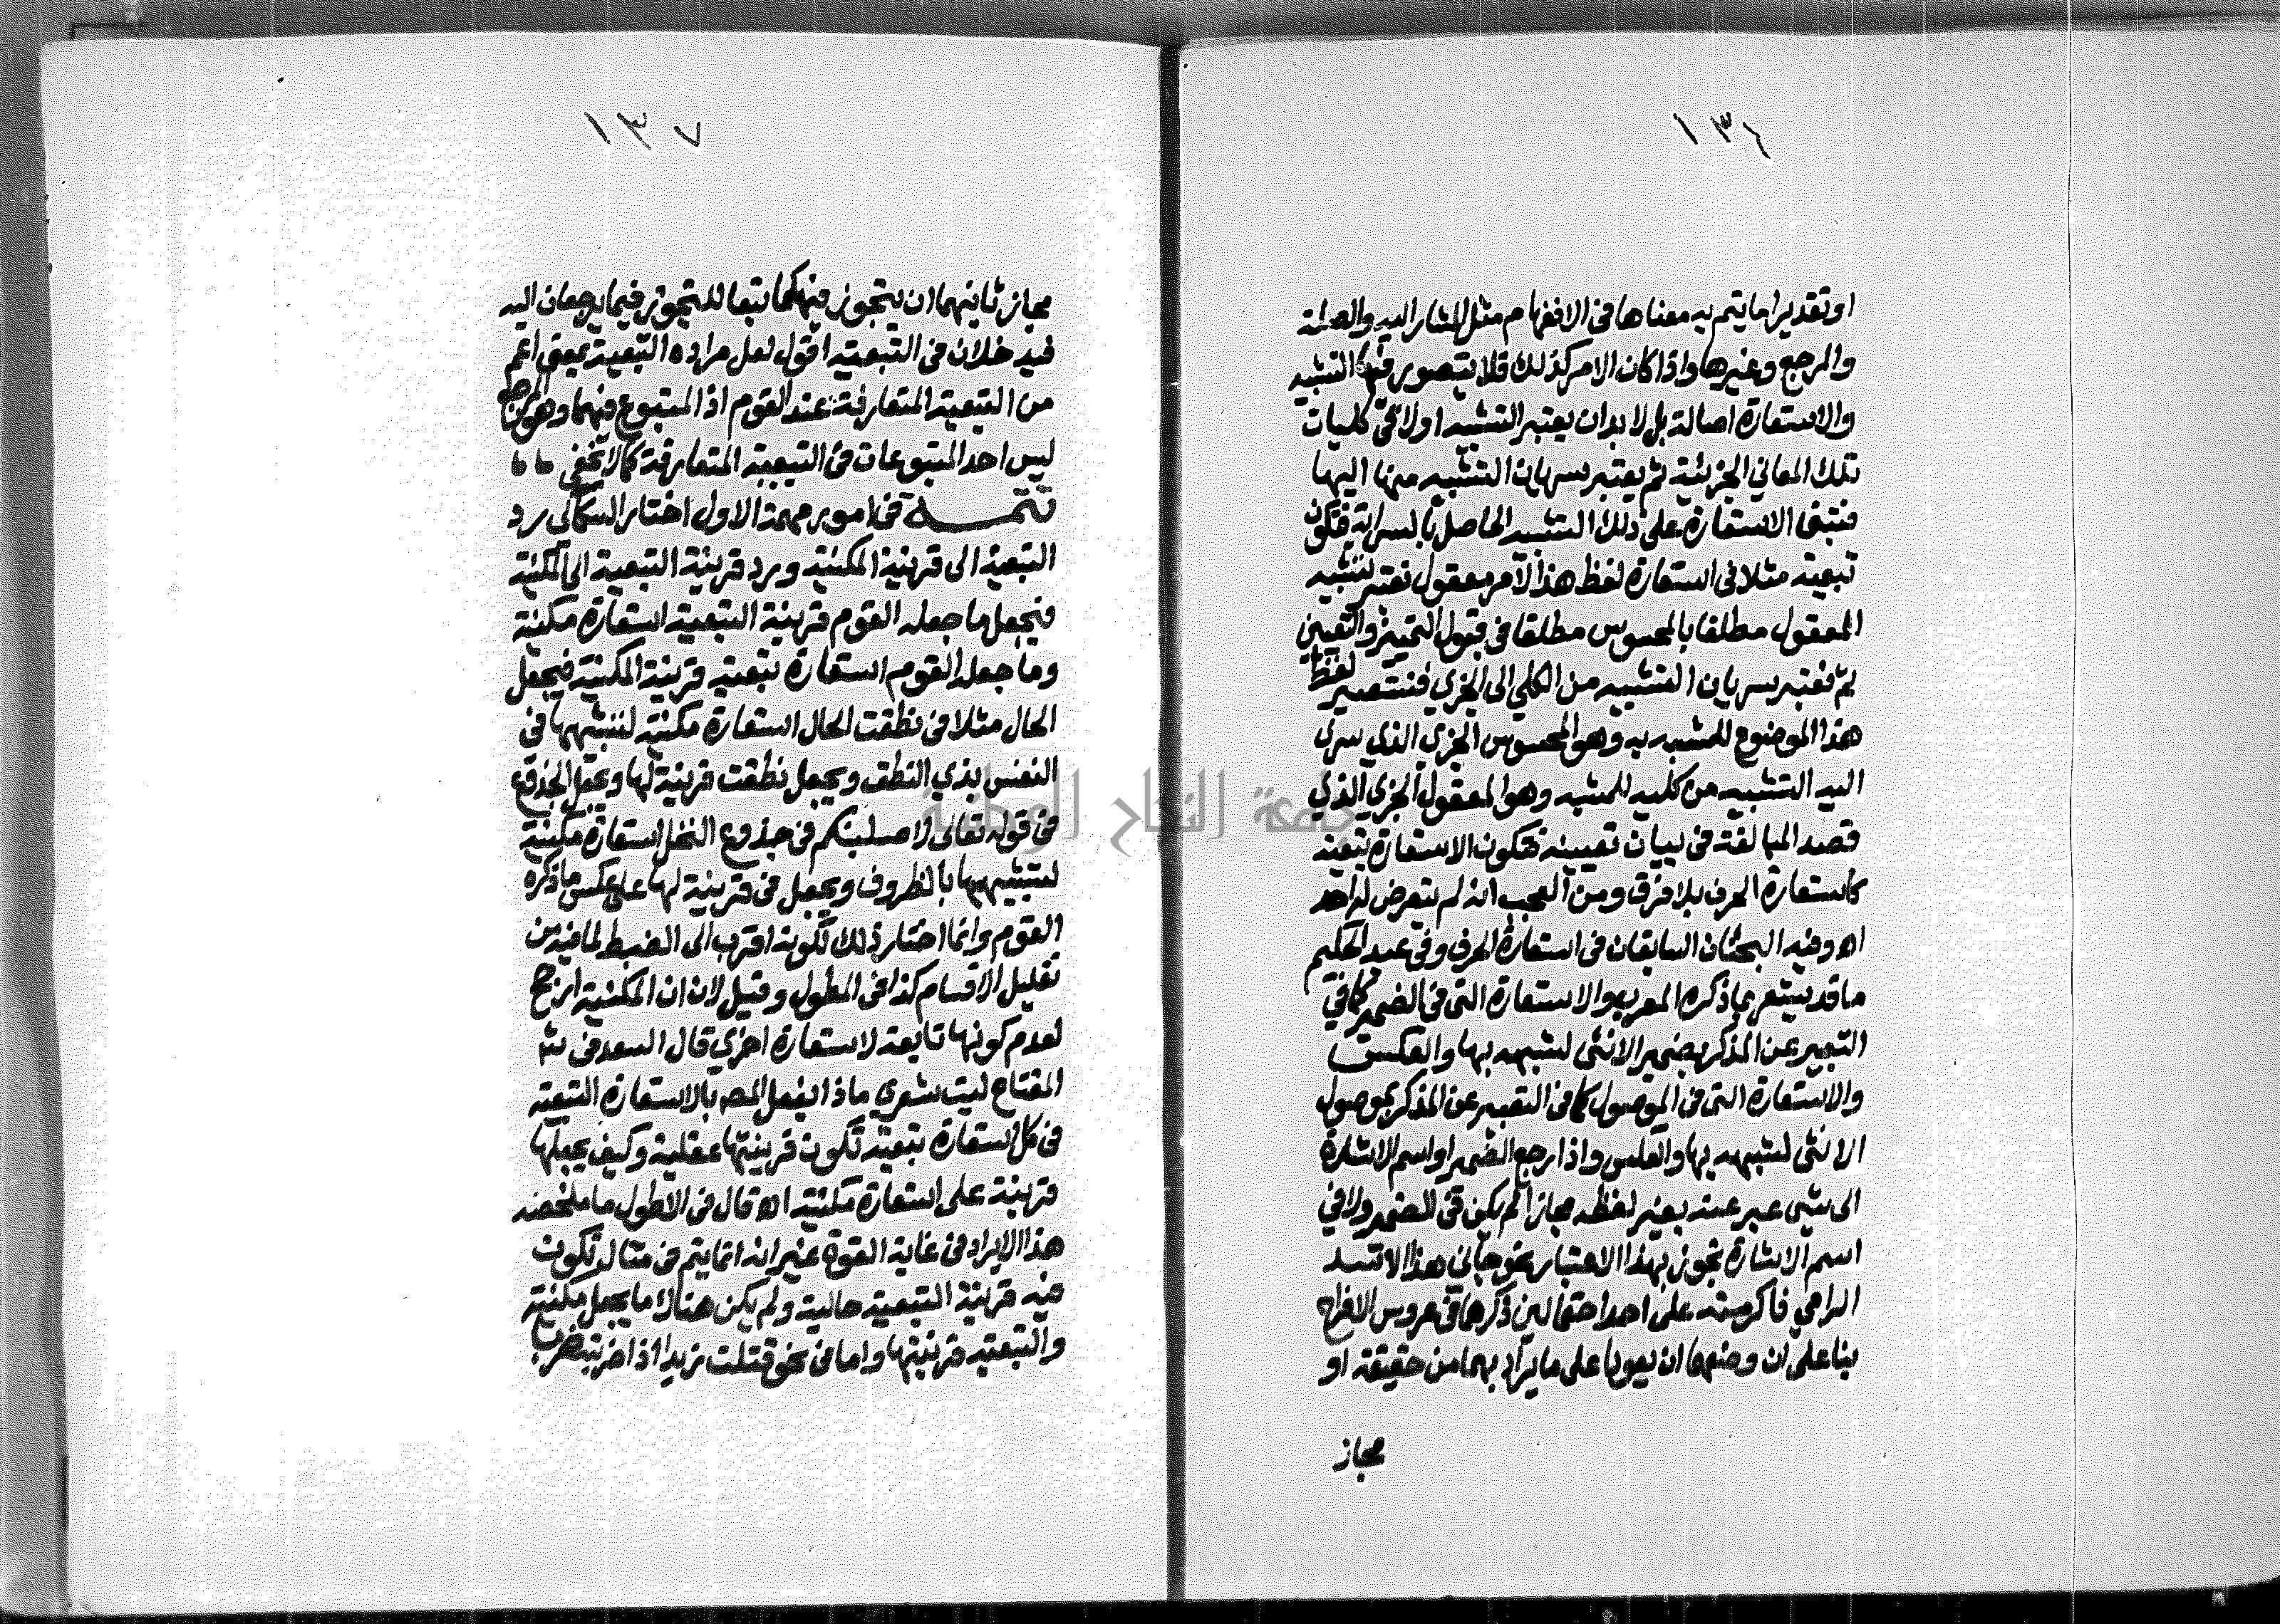 ١٣٦
او تقديرا ما يتم به معناها في الافهام مثل المشار اليه والصلة
والمرجع وغيرها واذا كان الامر كذلك فلا يتصور فيها التشبيه
والاستعارة اصالة بل لا بد ان يعتبر التشبيه اولا في كليات
تلك المعاني الجزئية ثم يعتبر سريان التشبيه منها اليها
فتبنى الاستعارة على ذلك التشبيه الحاصل بالسراية فتكون
تبعية مثلا في استعارة لفظ هذا لامر معقول نعتبر تشبيه
المعقول مطلقا بالمحسوس مطلقا في قبول التمييز والتعيين
ثم نعتبر سريان التشبيه من الكلي الى الجزي فنستعير لفظ
هذا الموضوع للمشبه به وهو المحسوس الجزي الذي سرى
اليه التشبيه من كليه للمشبه وهو المعقول الجزي الذي
قصد المبالغة في بيان تعيينه فتكون الاستعارة تبعية
كاستعارة الحرف بلا فرق ومن العجب انه لم يتعرض له احد
اه وفيه البحثان السابقان في استعارة الحرف وفي عبد الحكيم
ما قد يشعر بما ذكره المعرب والاستعارة التي في الضمير كما في
التعبير عن المذكر بضمير الانثى لشبهه بها والعكس
والاستعارة التي في الموصول كما في التعبير عن المذكر بموصول
الانثى لشبهه بها والعكس واذا رجع الضمير او اسم الاشارة
الى شي عبر عنه بغير لفظه مجازا لم يكن في الضمير ولا في
اسم الاشارة تجوز بهذا الاعتبار نحو جاني هذا الاسد
الرامي فاكرمته على احد احتمالين ذكرهما في عروس الافراح
بنا على ان وضعهما ان يعودا على ما يراد بهما من حقيقة او
مجاز
١٣٧
مجاز ثانيهما ان يتجوز فيهما تبعا للتجوز فيما يرجعان اليه
فيه خلاف في التبعية اقول لعل مراده التبعية بمعنى اعم
من التبعية المتعارفة عند القوم اذ المتبوع فيهما وهو المرجع
ليس احد المتبوعات في التبعية المتعارفة كما لا يخفى
تتمـــة في امور مهمة الاول اختار السكاكي رد
التبعية الى قرينة المكنية ورد قرينة التبعية الى المكنية
فيجعل ما جعله القوم قرينة التبعية استعارة مكنية
وما جعله القوم استعارة تبعية قرينة المكنية فيجعل
الحال مثلا في نطقت الحال استعارة مكنية لتشبيهها في
النفس بذي النطق ويجعل نطقت قرينة لها ويجعل الجذوع
في قوله تعالى لاصلبنكم في جذوع النخل استعارة مكنية
لتشبيهها بالظروف ويجعل في قرينة لها على عكس ما ذكره
القوم وانما اختار ذلك لكونه اقرب الى الضبط لما فيه من
تقليل الاقسام كذا في المطول وقيل لان المكنية ارجح
لعدم كونها تابعة لاستعارة اخرى قال السعد في شر
المفتاح ليت شعري ماذا يفعل المص بالاستعارة التبعية
في كل استعارة تبعية تكون قرينتها عقلية وكيف يجعلها
قرينة على استعارة مكنية اه قال في الاطول ما ملخصه
هذا الايراد في غاية القوة غير انه انما يتم في مثال تكون
فيه قرينة التبعية حالية ولم يكن هناك ما يجعل مكنية
والتبعية قرينتها واما في نحو قتلت زيدا اذا ضربته ضربا